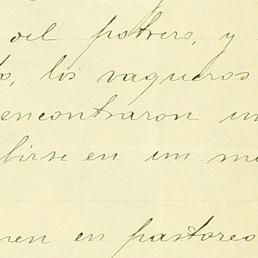 del potrero, y
los vaqueros
encontraron un
birse en un
en pastoreo